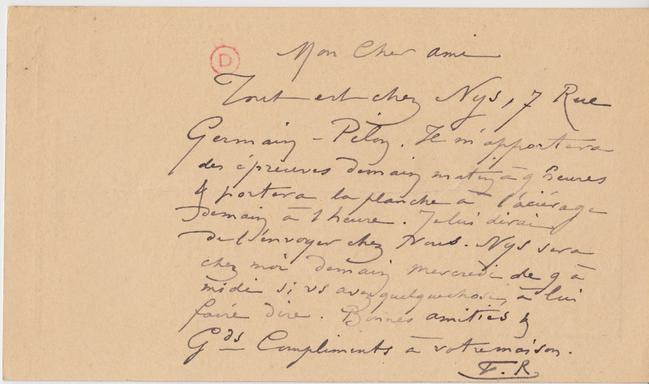 D
Mon Cher ami
Tout est chez Nys, 7 Rue
Germain-Pilon. Il m'apportera
des épreuves demain matin à 9 heures
& portera la planche à l'aciérage
demain à 1 heure. Je lui dirai
de l'envoyer chez Vous. Nys sera
chez moi demain mercredi de 9 à
midi si vs avez quelquechose à lui
faire dire. Bonnes amitiés &
Gds Compliments à votre maison.
F. R